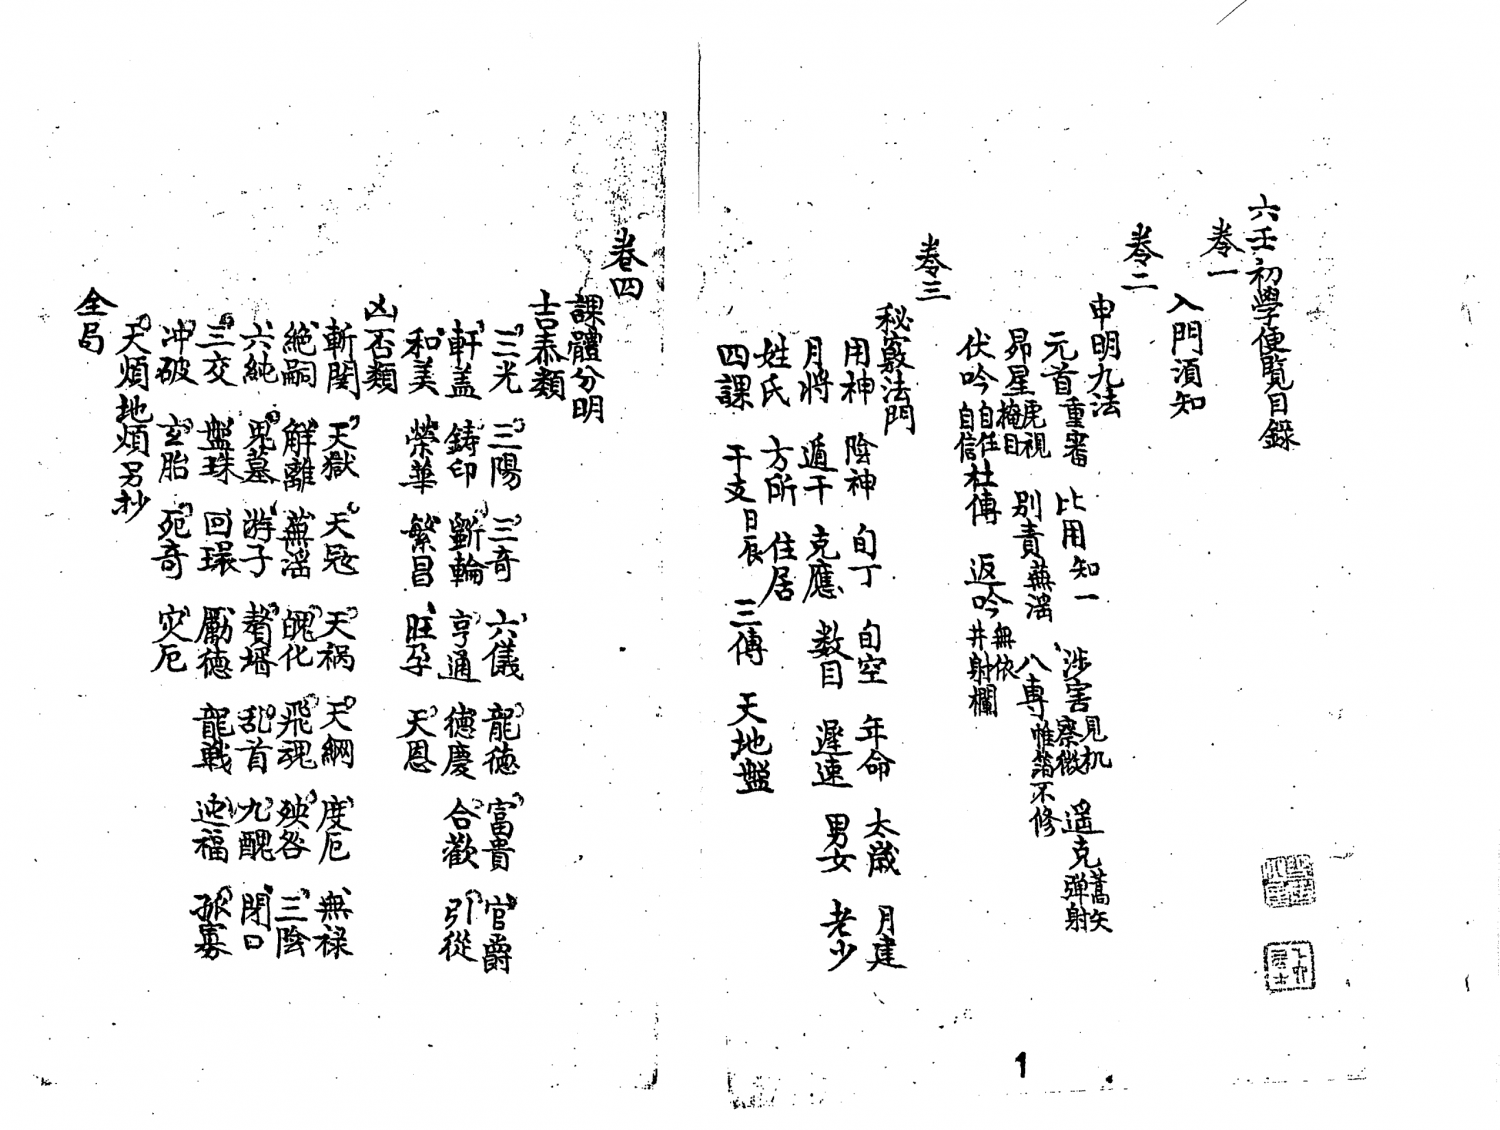 六壬初學便覽目錄
卷一
入門須知
卷二
申明九法
元首 重審 比用 知一 涉害 見机 察微 遥克 蒿矢 弹射
昴星 虎視 掩目 别責 蕪滛 八専 帷簿不修
伏吟 自任 自信 杜傳 返吟 無依 井射欄
卷三
秘竅法門
用神 陰神 旬丁 旬空 年命 太歳 月建
月將 遁干 克應 数目 遲速 男女 老少
姓氏 方所 住居
四課 干支 日辰 三傳 天地盤
卷四
課體分明
吉泰類
三光 三陽 三奇 六儀 龍徳 富貴 官爵
軒蓋 鋳印 斵輪 亨通 德慶 合歡 引從
和美 榮華 繁昌 旺孕 天恩
凶否類
斬関 天獄 天冦 天祸 天網 度厄 無禄
絶嗣 解離 蕪滛 魄化 飛魂 殃咎 三陰
六純 鬼墓 游子 贅壻 乱首 九醜 閉口
三交 盤珠 回環 勵德 龍戰 迍福 孤寡
冲破 玄胎 死奇 灾厄
天煩地煩另抄
全局
1